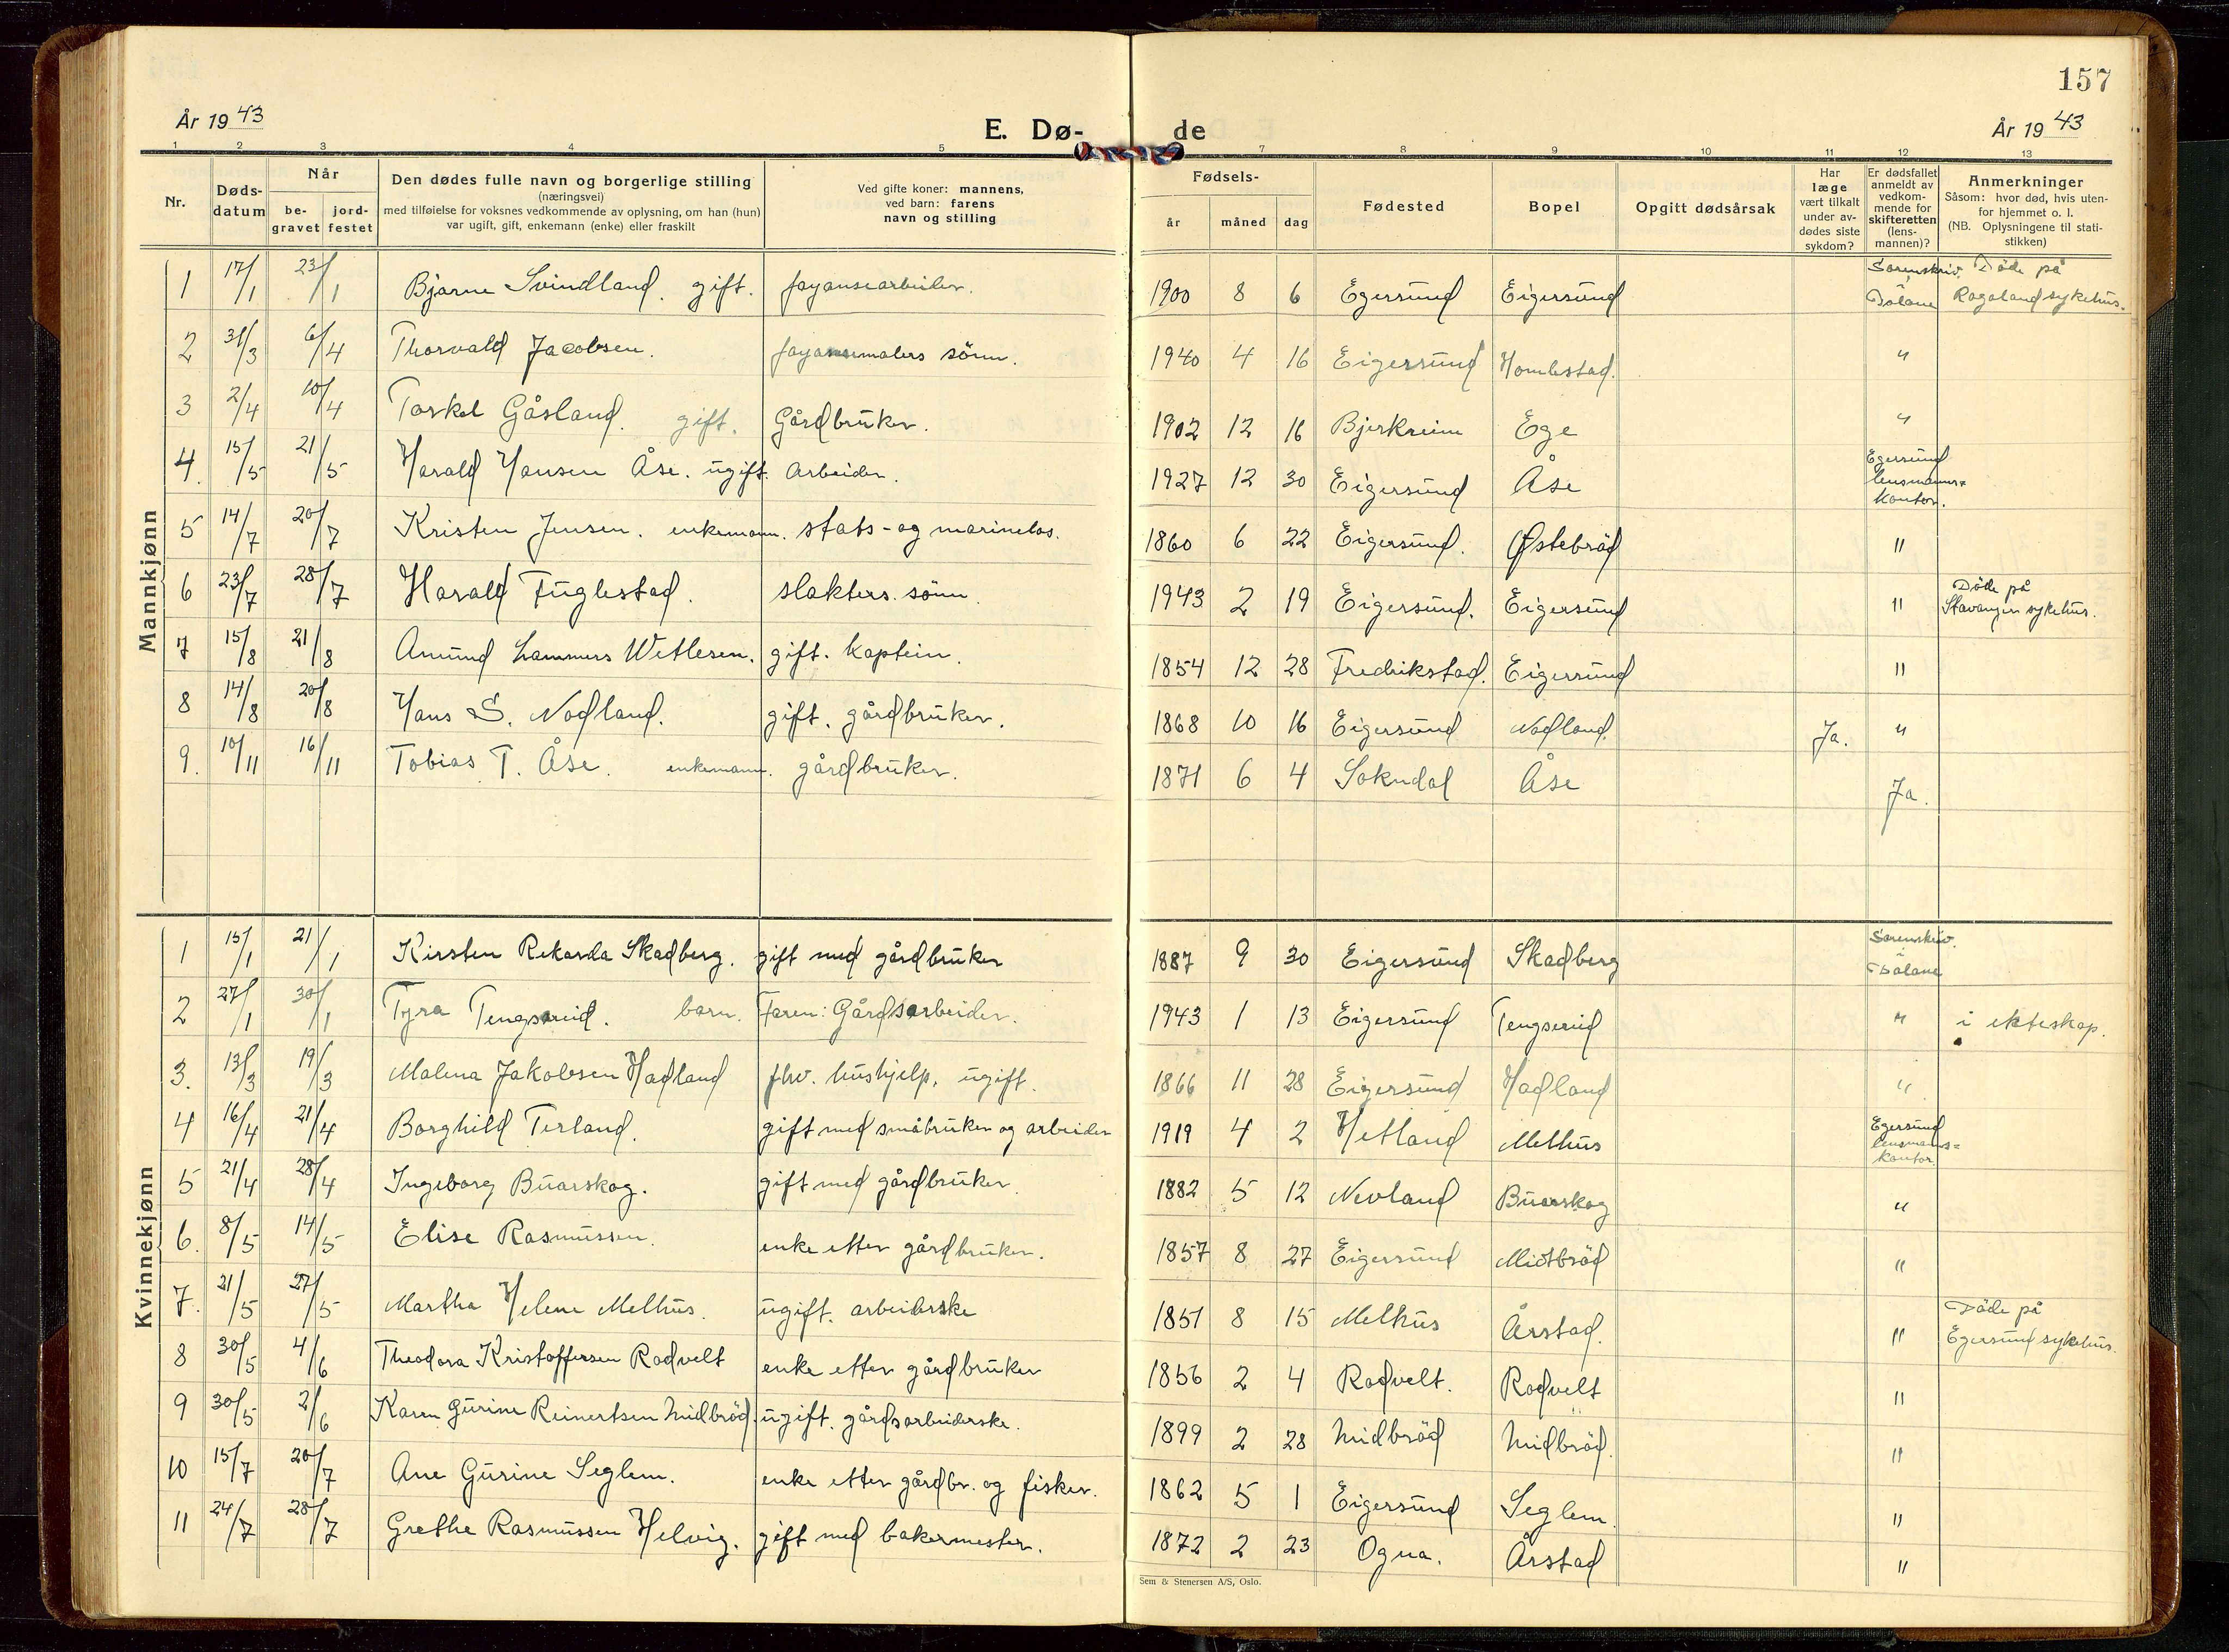 157
År 1943
E. Dø-
de
År 1943
1 2 3 4 5 7 8 9 10 11 12 13
Nr. Døds-datum Når be-gravet jord-festet
Den dødes fulle navn og borgerlige stilling
(næringsvei)
med tilføielse for voksnes vedkommende av oplysning, om han (hun)
var ugift, gift, enkemann (enke) eller fraskilt
Ved gifte koner: mannens,
ved barn: farens
navn og stilling
Fødsels- år måned dag
Fødested
Bopel
Opgitt dødsårsak
Har læge vært tilkalt under av-dødes siste sykdom?
Er dødsfallet anmeldt av vedkom-mende for skifteretten (lens-mannen)?
Anmerkninger
Såsom: hvor død, hvis uten-
for hjemmet o. l.
(NB. Oplysningene til stati-
stikken)
Mannkjønn
1 17/1 23/1 Bjarne Svindland. gift. fayansearbeider. 1900 8 6 Egersund Eigersund Sorenskriv. Dalane Døde på Rogaland sykehus.
2 31/3 6/4 Thorvald Jacobsen. fayansemalers sönn. 1940 4 16 Eigersund Homlestad. "
3 2/4 10/4 Torkel Gåsland. gift. Gårdbruker. 1902 12 16 Bjerkreim Ege "
4. 15/5 21/5 Harald Hansen Åse. ugift. Arbeider. 1927 12 30 Eigersund Åse Egersund lensmanns= kontor.
5 14/7 20/7 Kristen Jensen. enkemann. stats- og marinelos. 1860 6 22 Eigersund. Østebröd "
6 23/7 28/7 Harald Fuglestad. slakters sönn. 1943 2 19 Eigersund. Eigersund " Döde på Stavanger sykehus.
7 15/8 21/8 Amund Lammers Wetlesen. gift. Kaptein. 1854 12 28 Fredrikstad. Eigersund "
8 14/8 20/8 Hans S. Nodland. gift. gårdbruker. 1868 10 16 Eigersund Nodland. Ja. "
9. 10/11 16/11 Tobias T. Åse. enkemann. gårdbruker. 1871 6 4 Sokndal Åse Ja.
Kvinnekjønn
1 15/1 21/1 Kirsten Rekarda Skadberg. gift med gårdbruker 1887 9 30 Eigersund Skadberg Sorenskriv. Dalane
2 27/1 30/1 Tyra Tengsareid. barn. Faren: Gårdsarbeider. 1943 1 13 Eigersund Tengsereid " i ekteskap.
3. 13/3 19/3 Malena Jakobsen Hadland fhv. hushjelp, ugift. 1866 11 28 Eigersund Hadland "
4 16/4 21/4 Borghild Terland. gift med småbruker og arbeider 1919 4 2 Hetland Melhus Egersund lensmanns= kontor.
5 21/4 28/4 Ingeborg Buarskog. gift med gårdbruker. 1882 5 12 Nevland Buarskog "
6. 8/5 14/5 Elise Rasmussen. enke etter gårdbruker. 1857 8 27 Eigersund Midtbröd "
7. 21/5 27/5 Martha Helene Melhus. ugift. arbeiderske 1851 8 15 Melhus Årstad. " Döde på Egersund sykehus.
8 30/5 4/6 Theodora Kristoffersen Rodvelt enke etter gårdbruker 1856 2 4 Rodvelt. Rodvelt "
9 30/5 2/6 Karen Gurine Reinertsen Midbröd. ugift. gårdsarbeiderske. 1899 2 28 Midbröd Midbröd. "
10 15/7 20/7 Ane Gurine Seglem. enke etter gårdbr. og fisker. 1862 5 1 Eigersund Seglem. "
11 24/7 28/7 Grethe Rasmussen Helvig. gift med bakermester. 1872 2 23 Ogna. Årstad "
Sem & Stenersen A/S, Oslo.